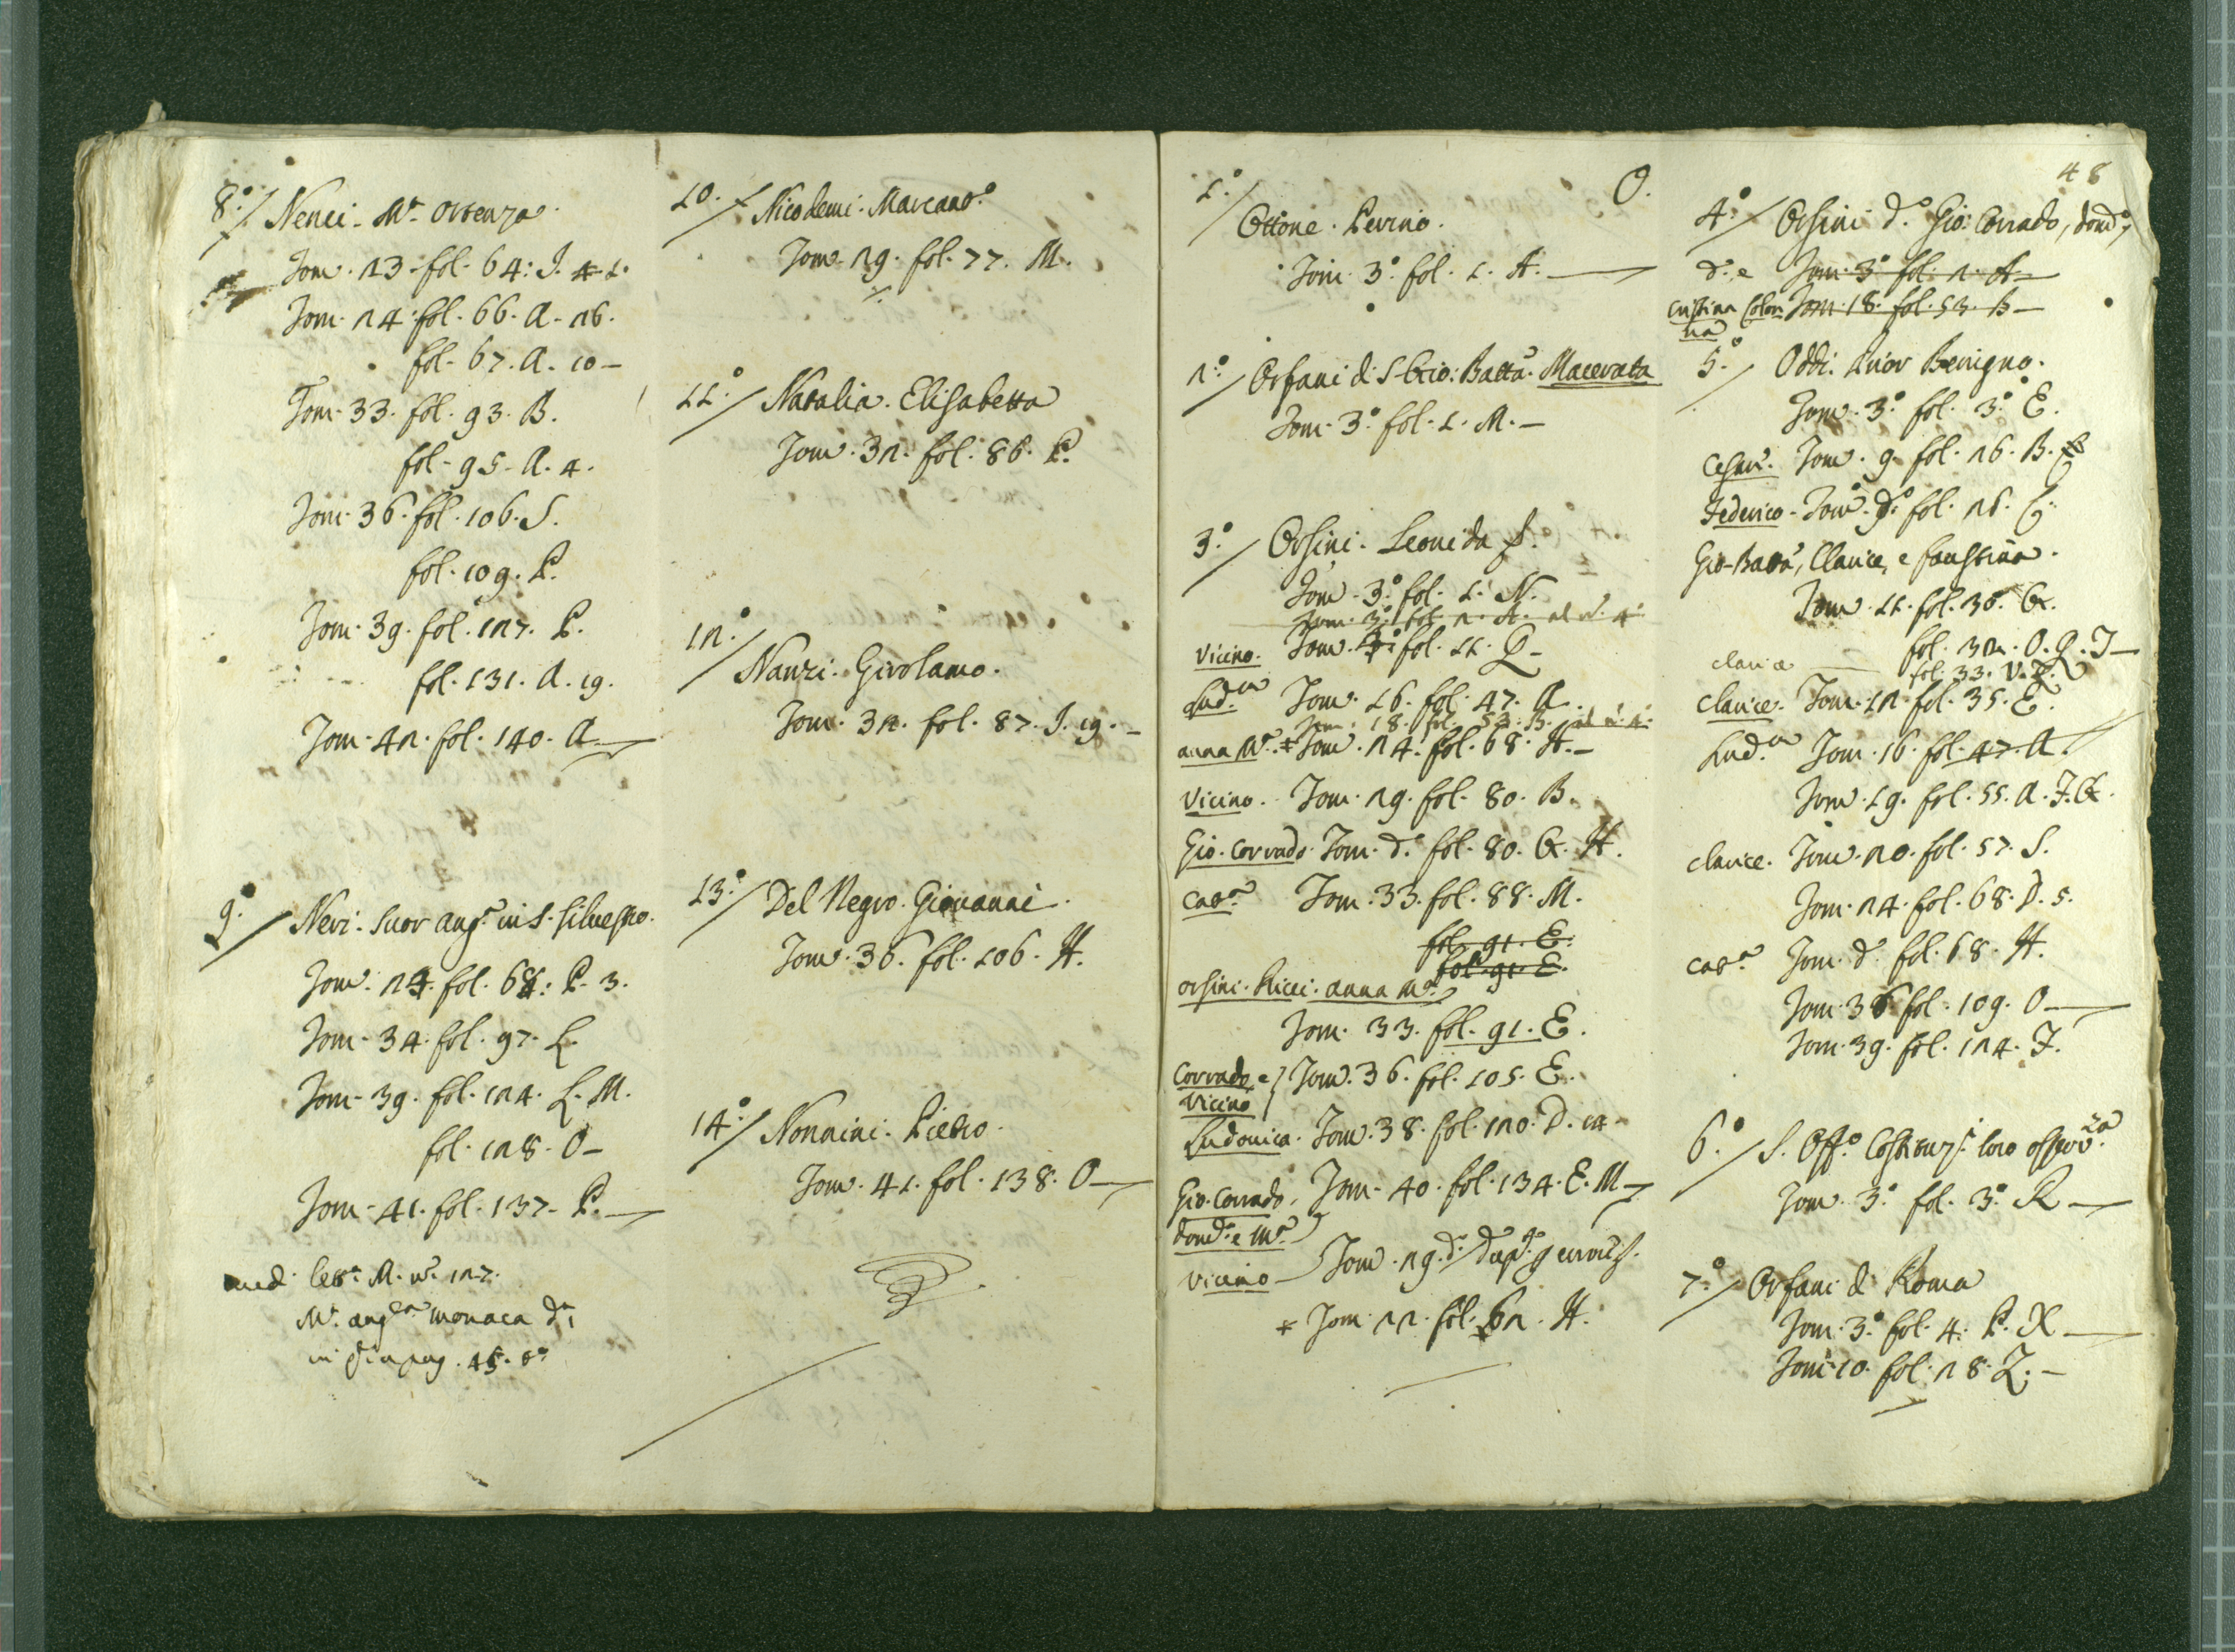 8.º / Nenci. M.ª Ortenza.
Tom. 23. fol. 64. I. 4. 1.
Tom. 24. fol. 66. A. 26.
fol. 67. A. 10 –
Tom. 33. fol. 93. B.
fol. 95. A. 4.
Tom. 36. fol. 106. S.
fol. 109. P.
Tom. 39. fol. 127. P.
fol. 131. A. 19.
Tom. 42. fol. 140. A
9.º / Neri. Suor Ang.ª in S. Silvestro.
Tom. 24. fol. 68. P. 3.
Tom. 34. fol. 97. L.
Tom. 39. fol. 124. L. M.
fol. 128. O –
Tom. 41. fol. 137. P.
M. nº. 127.
M.ª Ang.ca monaca
pag. 45.
10. / Nicodemi. Marcant.º
Tom. 29. fol. 77. M.
11.º / Natalia. Elisabetta
Tom. 32. fol. 86. P.
12.º / Nanzi. Girolamo.
Tom. 32. fol. 87. I. 19. –
13.º / Del Negro. Giovanni.
Tom. 36. fol. 106. H.
14.º / Nonnini. Pietro.
Tom. 41. fol. 138. O
O.
1.º / Ottone. Pevino.
Tom. 3.º fol. 1. A.
2.º / Orfani di S. Gio: Batta. Macerata
Tom. 3.º fol. 1. M. –
3.º / Orsini. Leonida f.
Tom. 3.º fol. 1. N.
Tom. 3.º fol. 2. A. al nº. 4.
Vicino. Tom. fol. 11. Q –
Lud.ca Tom. 16. fol. 47. A.
Tom. 18. fol. 53. B. al nº. 4.
Anna M.ª * Tom. 24. fol. 68. H. –
Vicino. Tom. 29. fol. 80. B.
Gio. Corrado. Tom. d.º fol. 80. G. H.
Cat.ª Tom. 33. fol. 88. M.
fol. 91. E.
fol. 91. E.
Orsini. Ricci. Anna M.ª
Tom. 33. fol. 91. E.
Corrado e } Tom. 36. fol. 105. E.
Vicino
Ludovica. Tom. 38. fol. 120. D. 14 –
Gio. Corrado, Tom. 40. fol. 134. E. M
Dom.º e M.ª
Vicino – Tom. 29. d.º
* Tom. 22. fol. 62. H.
48
4.º / Orsini d.º Gio: Corrado, Dom.º,
d.º e Tom. 3.º fol. 2. A –
Cristina Colon Tom. 18. fol. 53. B –
na
5.º / Oddi. Suor Benigna.
Tom. 3.º fol. 3.º E.
Cesare. Tom. 9. fol. 26. B.
Federico. Tom. 9.º fol. 26. C.
Gio. Batta, Clarice, e Faustina.
Tom. 11. fol. 30. G.
fol. 32. O. Q. T –
Clarice fol. 33. V. Z.
Clarice. Tom. 12. fol. 35. E.
Lud.ca Tom. 16. fol. 47. A
Tom. 19. fol. 55. A. F. G.
Clarice. Tom. 20. fol. 57. S.
Tom. 24. fol. 68. D. 5.
Cat.ª Tom. d.º fol. 68. H.
Tom. 36. fol. 109. O
Tom. 39. fol. 124. F.
6.º / S. Off.º Costituz.i loro osserv.za
Tom. 3.º fol. 3.º R
7.º / Orfani di Roma
Tom. 3.º fol. 4. P. X
Tom. 10. fol. 28. Z. –